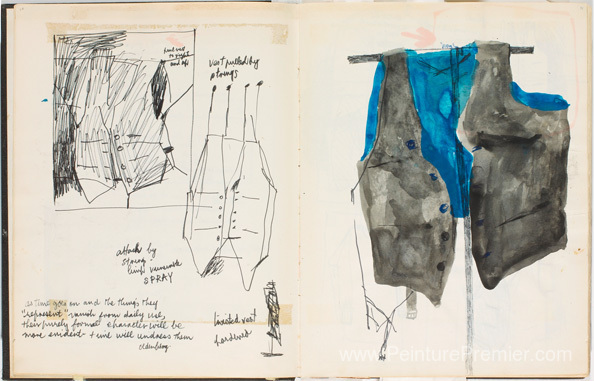 pull vest
to right
and up
vest pulled by
strings
attach by
string
SPRAY
as time goes on and the things they
"represent" vanish from daily use,
their purely formal character will be
more evident + time will undress them
Oldenburg
vest
www.PeinturePremier.com